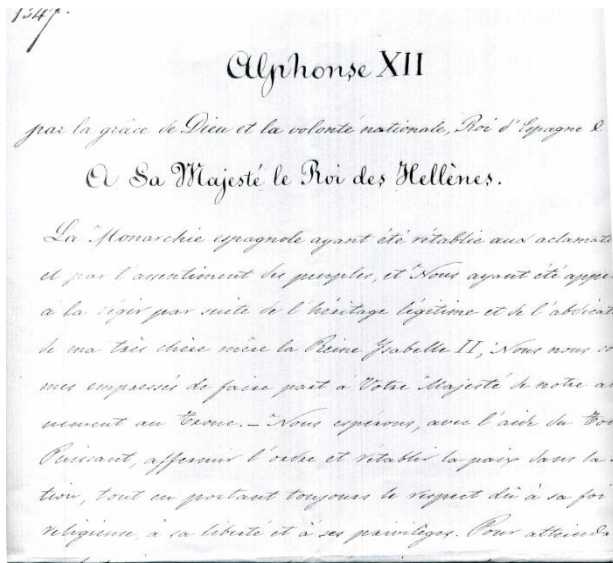 1347.
Alphonse XII
par la grâce de Dieu et la volonté nationale, Roi d'Espagne &
A Sa Majesté le Roi des Hellènes.
La Monarchie espagnole ayant été rétablie aux aclamat
et par l'assentiment des peuples, et Nous ayant été appe
à la régir par suite de l'héritage légitime et de l'abdicat
de ma très chère mère la Reine Ysabelle II, Nous nous so
mes empressés de faire part à Votre Majesté de notre a
nement au Trone. — Nous espérons, avec l'aide du Tou
Puissant, affermir l'ordre et rétablir la paix dans la
tion, tout en portant toujours le respect dû à sa foi
religieuse, à sa liberté et à ses privilèges. Pour atteind